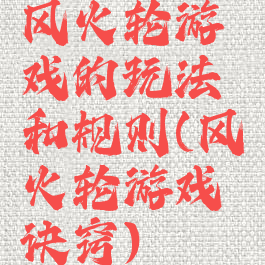 风火轮游
戏的玩法
和规则(风
火轮游戏
诀窍)